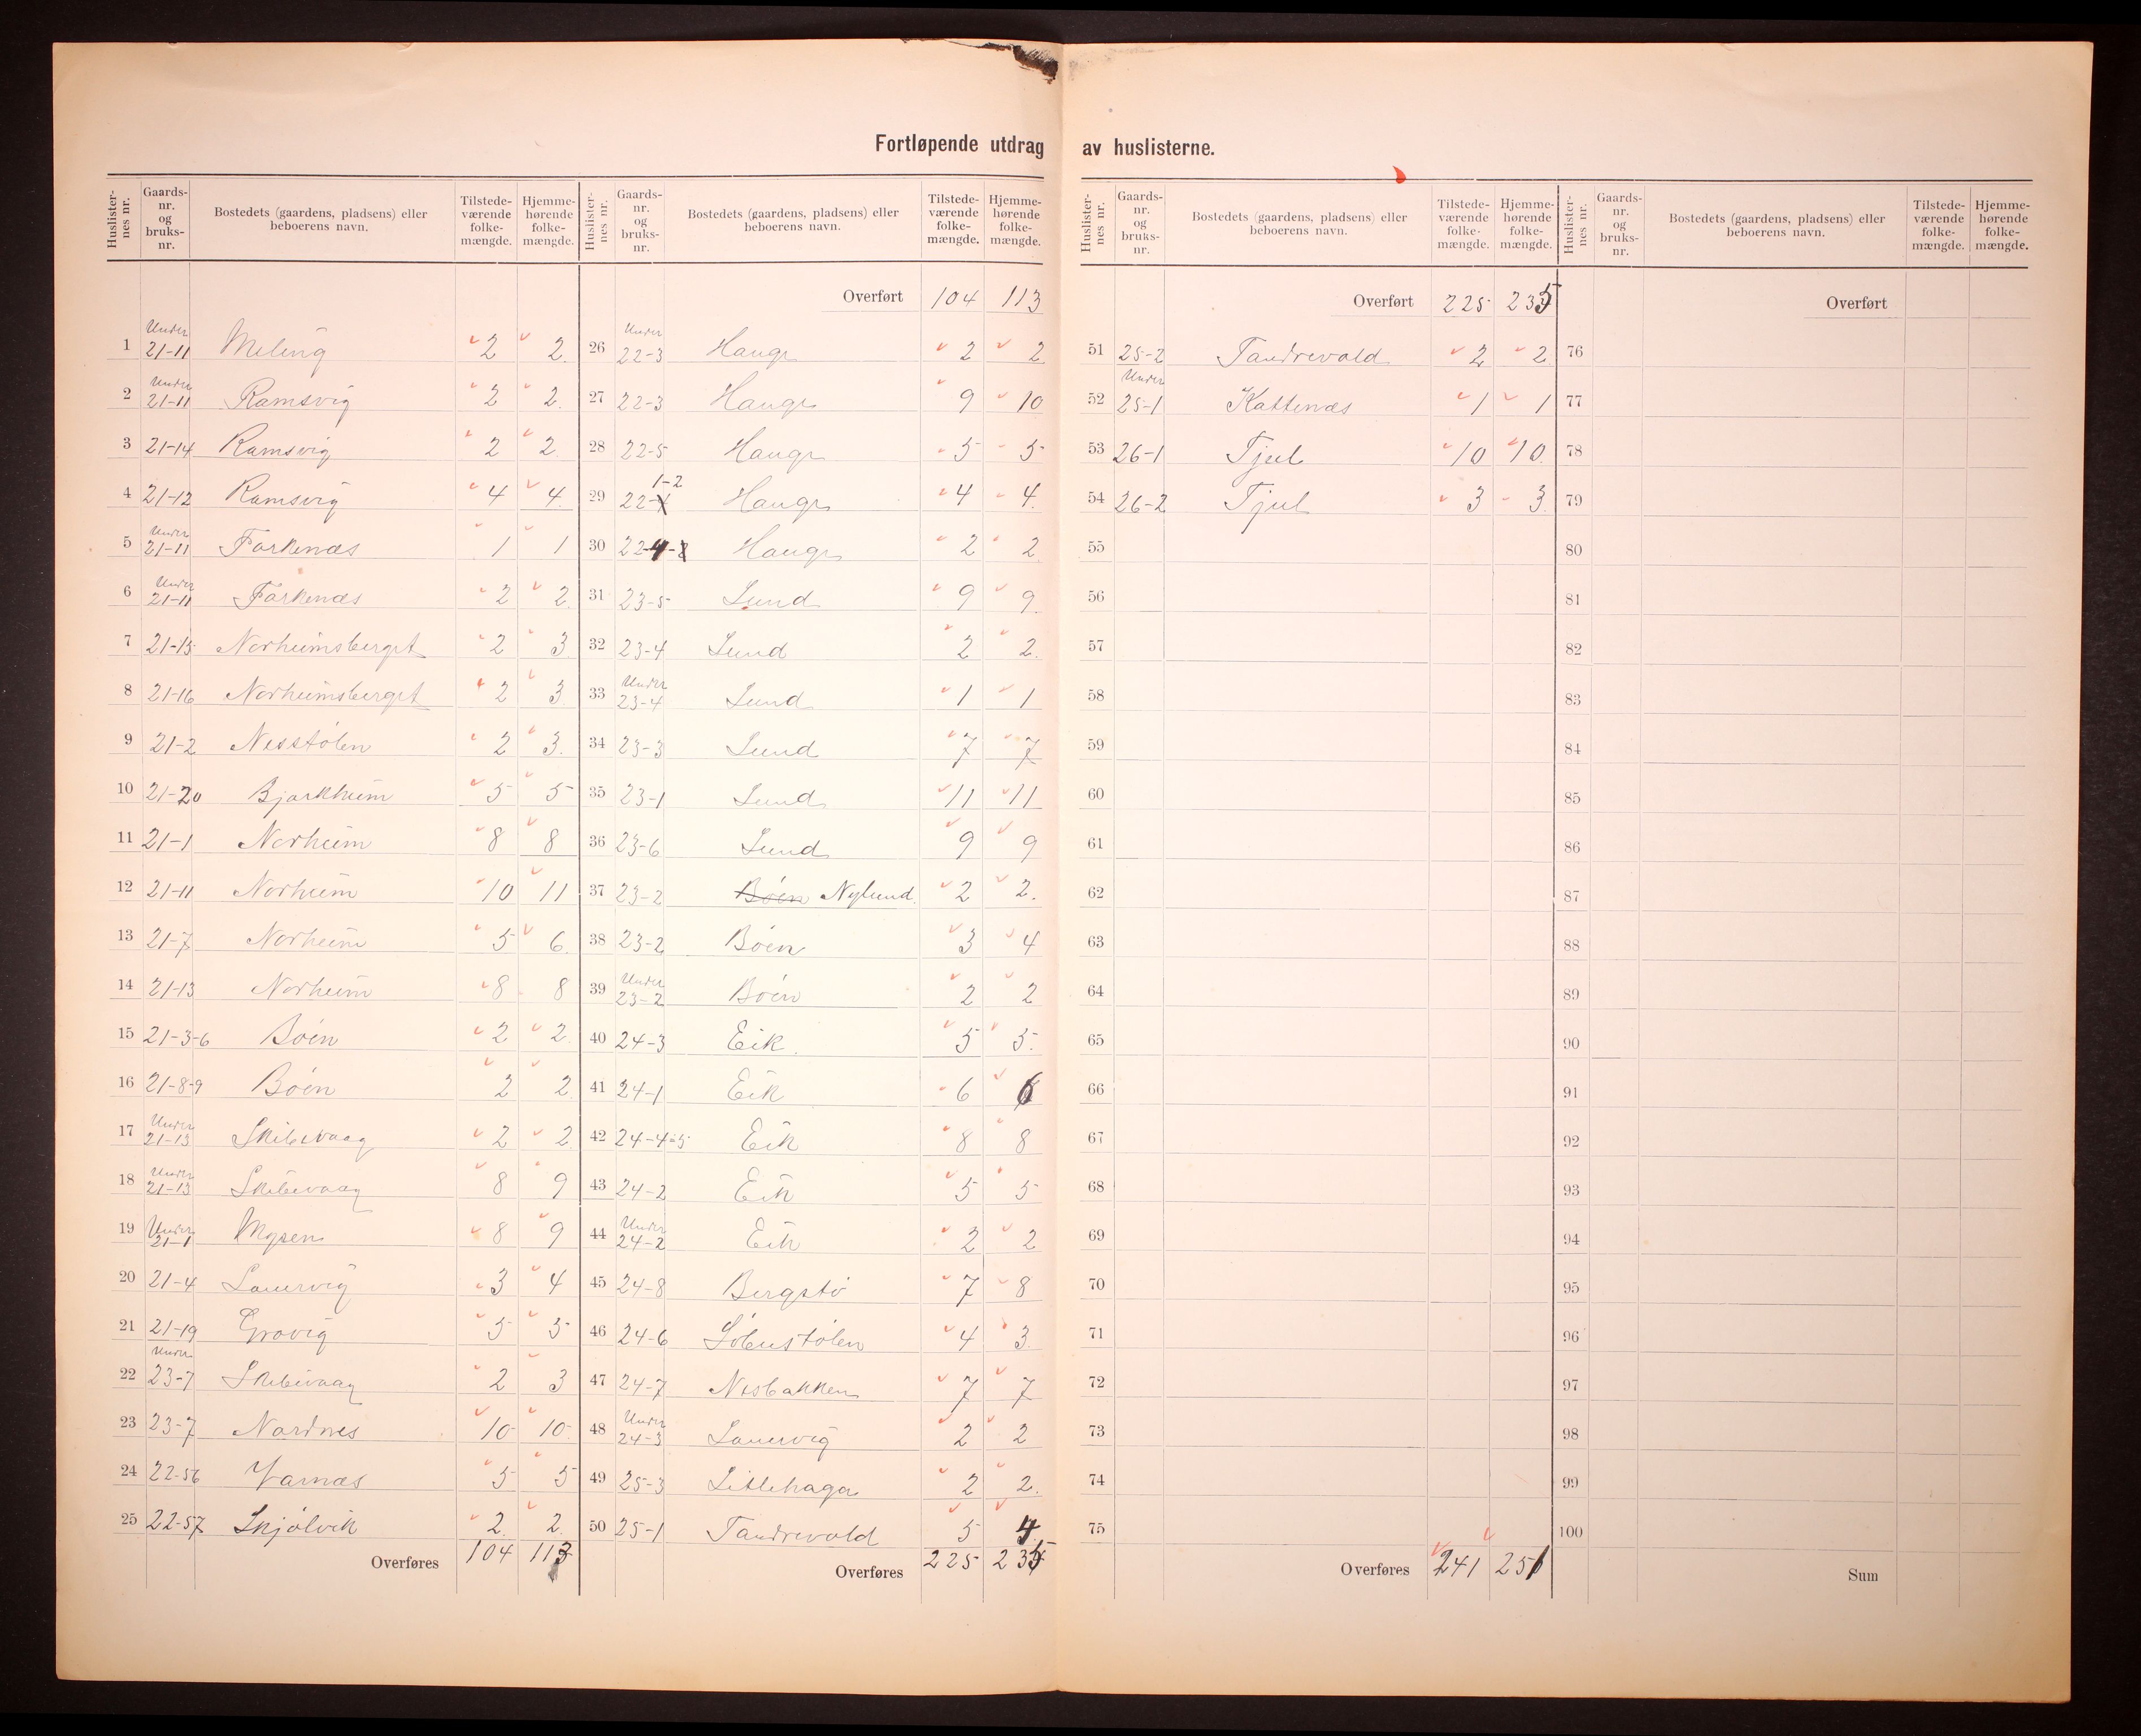 Fortløpende utdrag av huslisterne.
Huslisternes nr. | Gaardsnr. og bruksnr. | Bostedets (gaardens, pladsens) eller beboerens navn. | Tilstedeværende folkemængde. | Hjemmehørende folkemængde.
1 Under 21-11 Meling 2 2
2 Under 21-11 Ramsvig 2 2
3 21-14 Ramsvig 2 2
4 21-12 Ramsvig 4 4
5 Under 21-11 Farkenæs 1 1
6 Under 21-11 Farkenæs 2 2
7 21-15 Norheimsberget 2 3
8 21-16 Norheimsberget 2 3
9 21-2 Nesstølen 2 3
10 21-20 Bjarkheim 5 5
11 21-1 Norheim 8 8
12 21-11 Norheim 10 11
13 21-7 Norheim 5 6
14 21-13 Norheim 8 8
15 21-3-6 Bøen 2 2
16 21-8-9 Bøen 2 2
17 Under 21-13 Skibevaag 2 2
18 Under 21-13 Skibevaag 8 9
19 Under 21-1 Mysen 8 9
20 21-4 Lauervig 3 4
21 21-19 Grovig 5 5
22 Under 23-7 Skibevaag 2 3
23 23-7 Nordnes 10 10
24 22-56 Varnæs 5 5
25 22-57 Skjølvik 2 2
Overføres 104 113
Huslisternes nr. | Gaardsnr. og bruksnr. | Bostedets (gaardens, pladsens) eller beboerens navn. | Tilstedeværende folkemængde. | Hjemmehørende folkemængde.
Overført 104 113
26 Under 22-3 Hauge 2 2
27 22-3 Hauge 9 10
28 22-5 Hauge 5 5
29 22-1-2 Hauge 4 4
30 22-4 Hauge 2 2
31 23-5 Lund 9 9
32 23-4 Lund 2 2
33 Under 23-4 Lund 1 1
34 23-3 Lund 7 7
35 23-1 Lund 11 11
36 23-6 Lund 9 9
37 23-2 Bøen Nylund 2 2
38 23-2 Bøen 3 4
39 Under 23-2 Bøen 2 2
40 24-3 Eik 5 5
41 24-1 Eik 6 6
42 24-4-5 Eik 8 8
43 24-2 Eik 5 5
44 Under 24-2 Eik 2 2
45 24-8 Bergstø 7 8
46 24-6 Løbustølen 4 3
47 24-7 Nesbakken 7 7
48 Under 24-3 Lauervig 2 2
49 25-3 Litlehaga 2 2
50 25-1 Tandrevold 5 4
Overføres 225 235
Huslisternes nr. | Gaardsnr. og bruksnr. | Bostedets (gaardens, pladsens) eller beboerens navn. | Tilstedeværende folkemængde. | Hjemmehørende folkemængde.
Overført 225 235
51 25-2 Tandrevold 2 2
52 Under 25-1 Kattenæs 1 1
53 26-1 Tjul 10 10
54 26-2 Tjul 3 3
55
56
57
58
59
60
61
62
63
64
65
66
67
68
69
70
71
72
73
74
75
Overføres 241 251
Huslisternes nr. | Gaardsnr. og bruksnr. | Bostedets (gaardens, pladsens) eller beboerens navn. | Tilstedeværende folkemængde. | Hjemmehørende folkemængde.
Overført
76
77
78
79
80
81
82
83
84
85
86
87
88
89
90
91
92
93
94
95
96
97
98
99
100
Sum